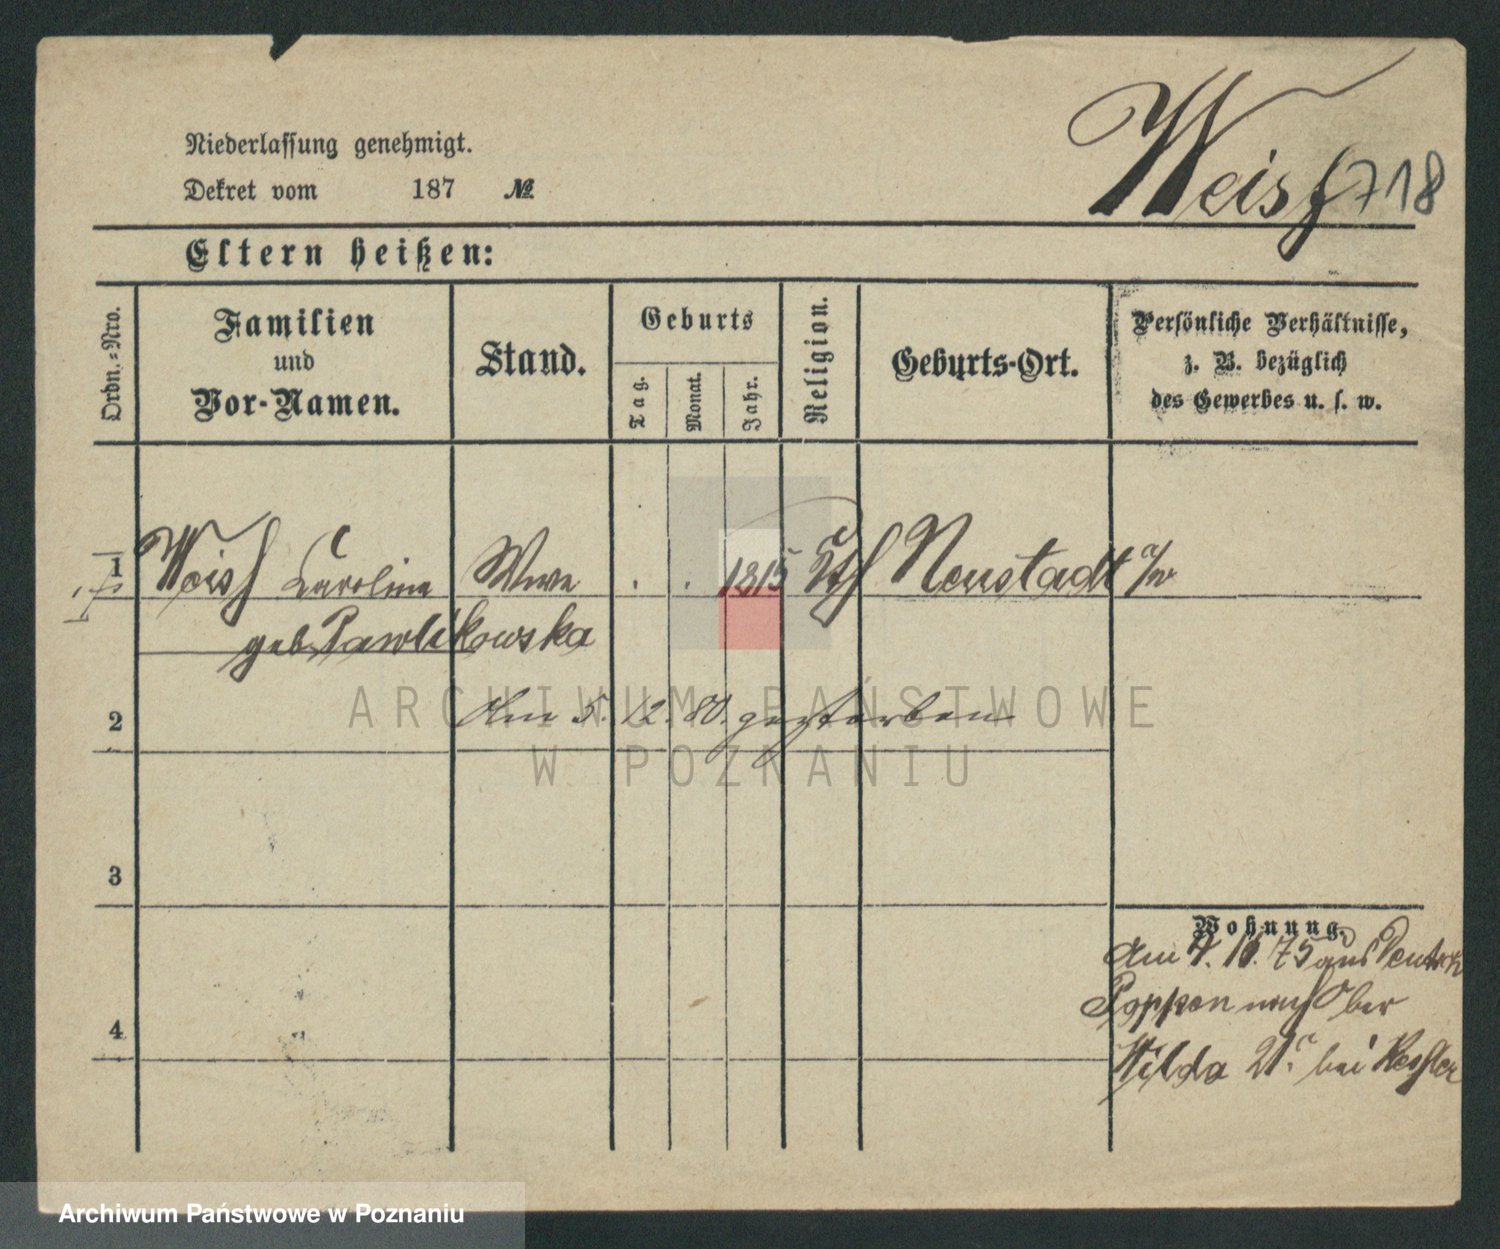 Weiss 718
Niederlassung genehmigt.
Dekret vom 187 №
Eltern heißen:
Ordn.-Nro.
Familien
und
Vor-Namen.
Stand.
Geburts
Tag.
Monat.
Jahr.
Religion.
Geburts-Ort.
Persönliche Verhältnisse,
z. B. bezüglich
des Gewerbes u. s. w.
1 Weiss Carolina Wwe . . 1815 Kth Neustadt a/w
geb Pawlikowska
2 Am 5. 12. 80. gestorben
3
4
Wohnung.
Am 4. 10. 75 aus
Poppen nach Ober
Wilda 21. bei
ARCHIWUM PAŃSTWOWE
W POZNANIU
Archiwum Państwowe w Poznaniu